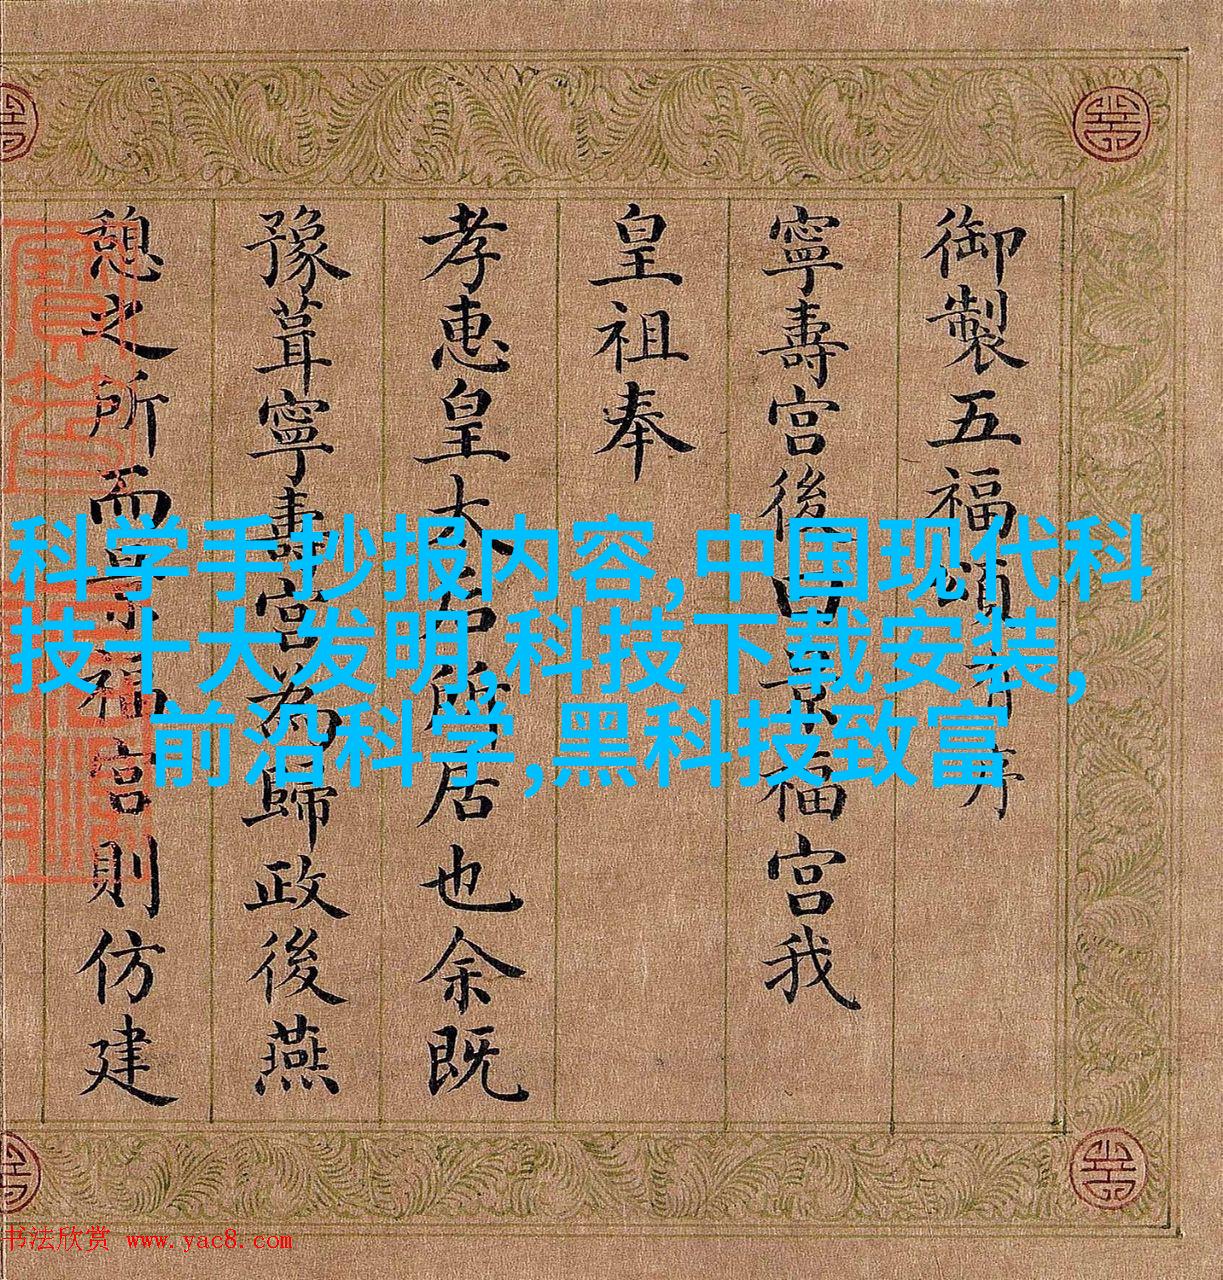 御製五福頌并序
寧壽宮後曰景福宮我
皇祖奉
孝惠皇太后所居也余既
豫葺寧壽宮為歸政後燕
憩之所而景福宮則仿建
科学手抄报内容,中国现代科
技十大发明,科技下载安装,
前沿科学,黑科技致富
书法欣赏 www.yac8.com